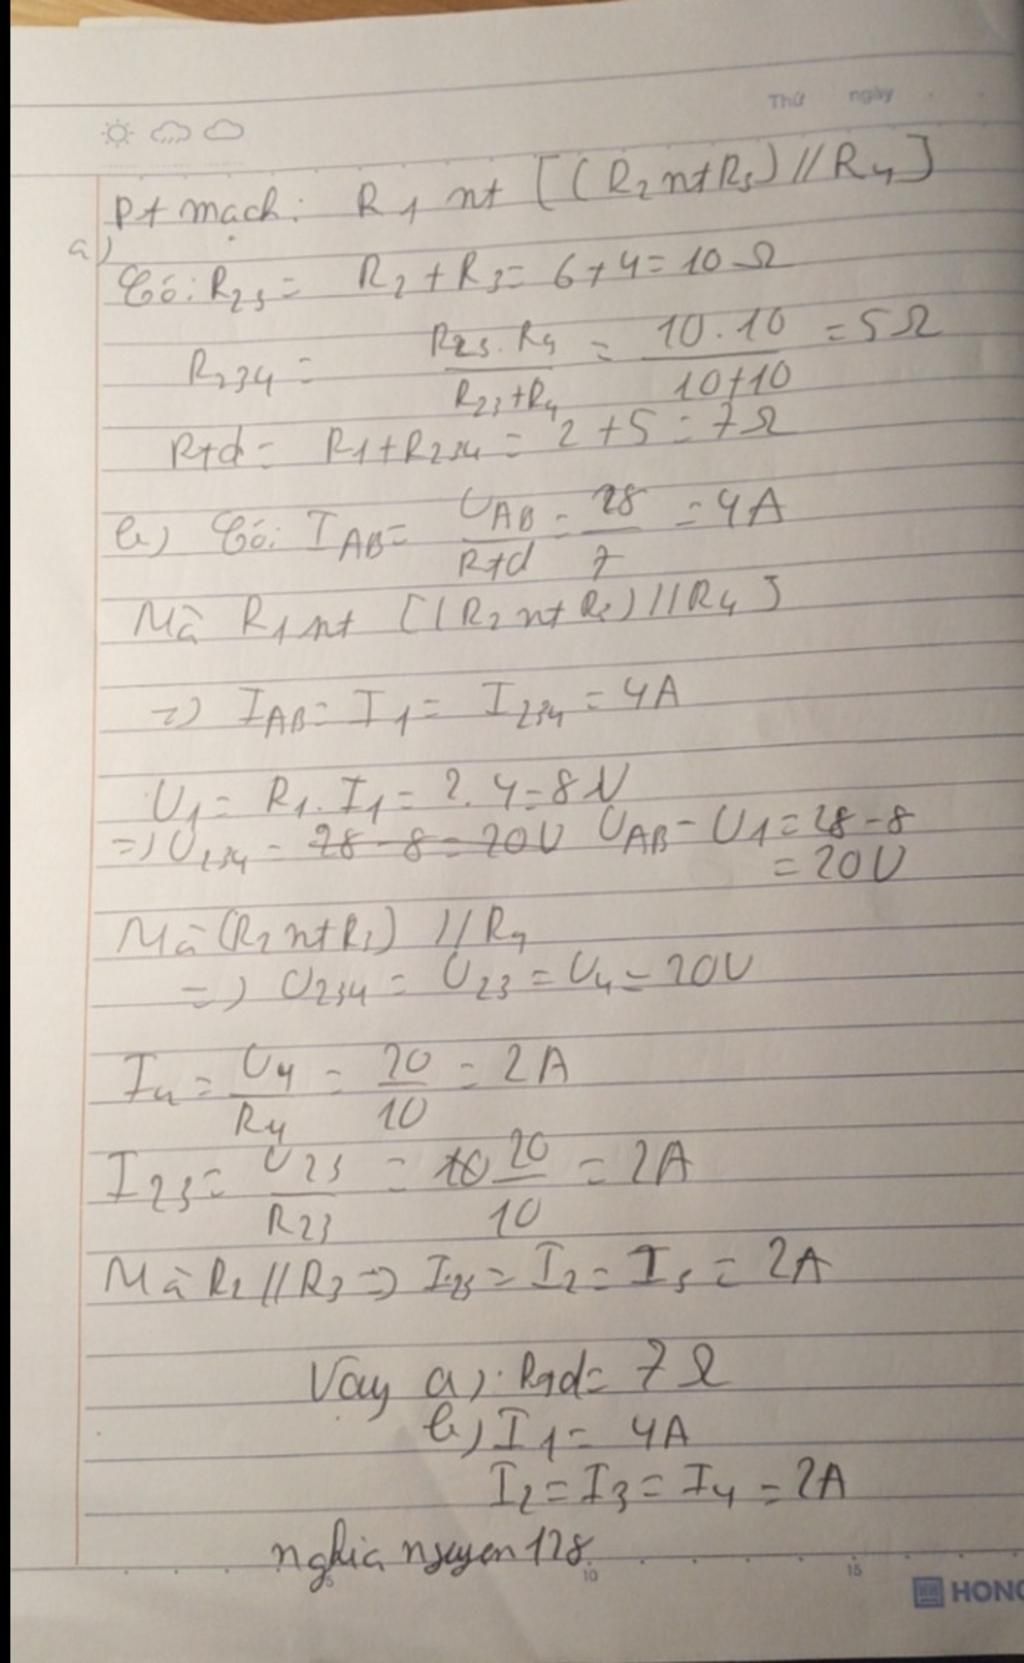 Thứ ngày
Pt mạch: R1 nt [(R2 nt R3) // R4]
a)
Có: R23 = R2 + R3 = 6 + 4 = 10 Ω
R234 = R23 . R4 / R23 + R4 = 10 . 10 / 10 + 10 = 5 Ω
Rtđ = R1 + R234 = 2 + 5 = 7 Ω
b) Có: IAB = UAB / Rtđ = 28 / 7 = 4A
Mà R1 nt [(R2 nt R3) // R4]
=> IAB = I1 = I234 = 4A
U1 = R1 . I1 = 2 . 4 = 8V
=> U234 = 28 - 8 = 20V UAB - U1 = 28 - 8
= 20V
Mà (R2 nt R3) // R4
=> U234 = U23 = U4 = 20V
I4 = U4 / R4 = 20 / 10 = 2A
I23 = U23 / R23 = 10 20 / 10 = 2A
Mà R2 // R3 => I23 = I2 = I3 = 2A
Vậy a) Rtđ = 7 Ω
b) I1 = 4A
I2 = I3 = I4 = 2A
nghia nguyen 128
5 10 15
HONG